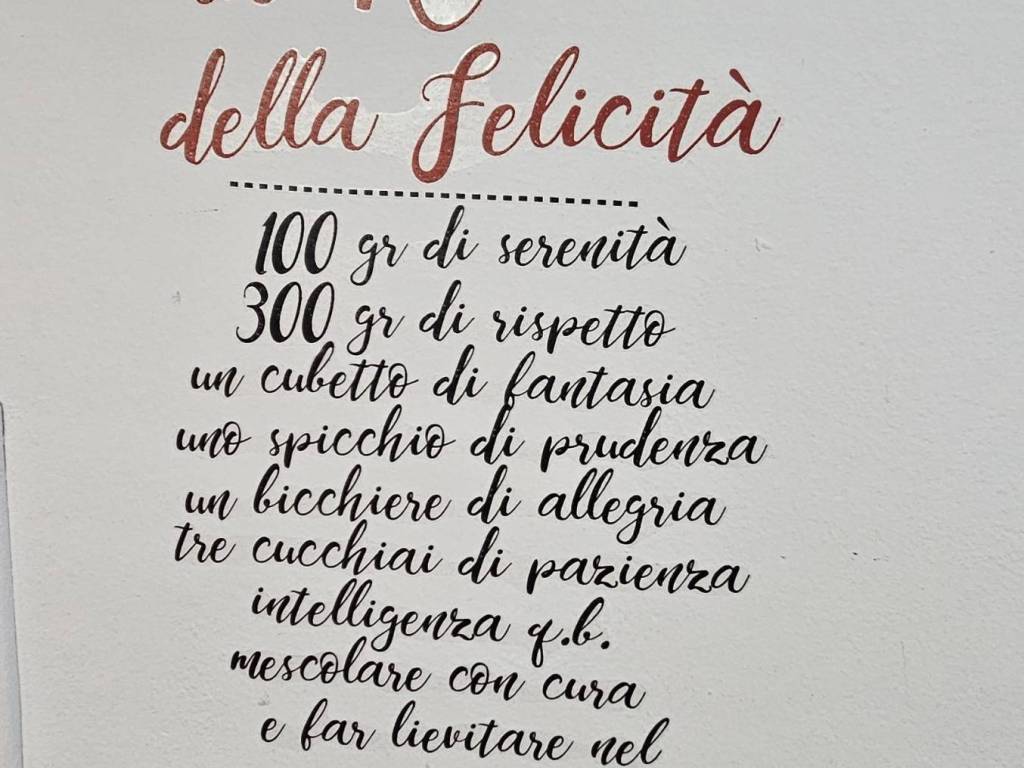 della Felicità
100 gr di serenità
300 gr di rispetto
un cubetto di fantasia
uno spicchio di prudenza
un bicchiere di allegria
tre cucchiai di pazienza
intelligenza q.b.
mescolare con cura
e far lievitare nel